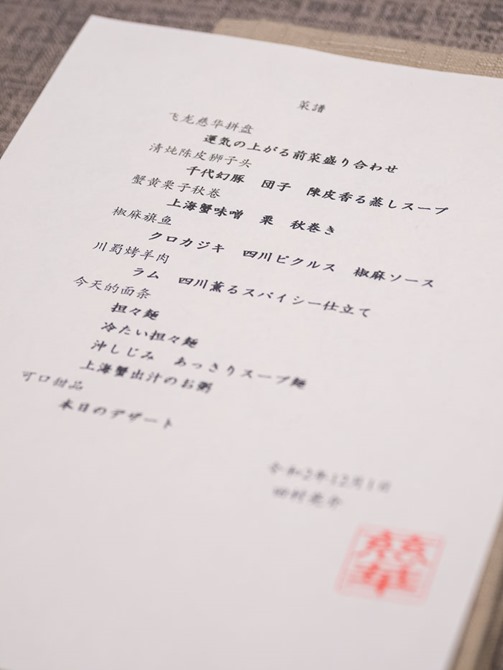 菜譜
飞龙慈华拼盘
運気の上がる前菜盛り合わせ
清炖陈皮狮子头
千代幻豚　団子　陳皮香る蒸しスープ
蟹黄栗子秋卷
上海蟹味噌　栗　秋巻き
椒麻旗鱼
クロカジキ　四川ピクルス　椒麻ソース
川蜀烤羊肉
ラム　四川薫るスパイシー仕立て
今天的面条
担々麺
冷たい担々麺
沖しじみ　あっさりスープ麺
上海蟹出汁のお粥
可口甜品
本日のデザート
令和2年12月1日
田村亮介
慈華